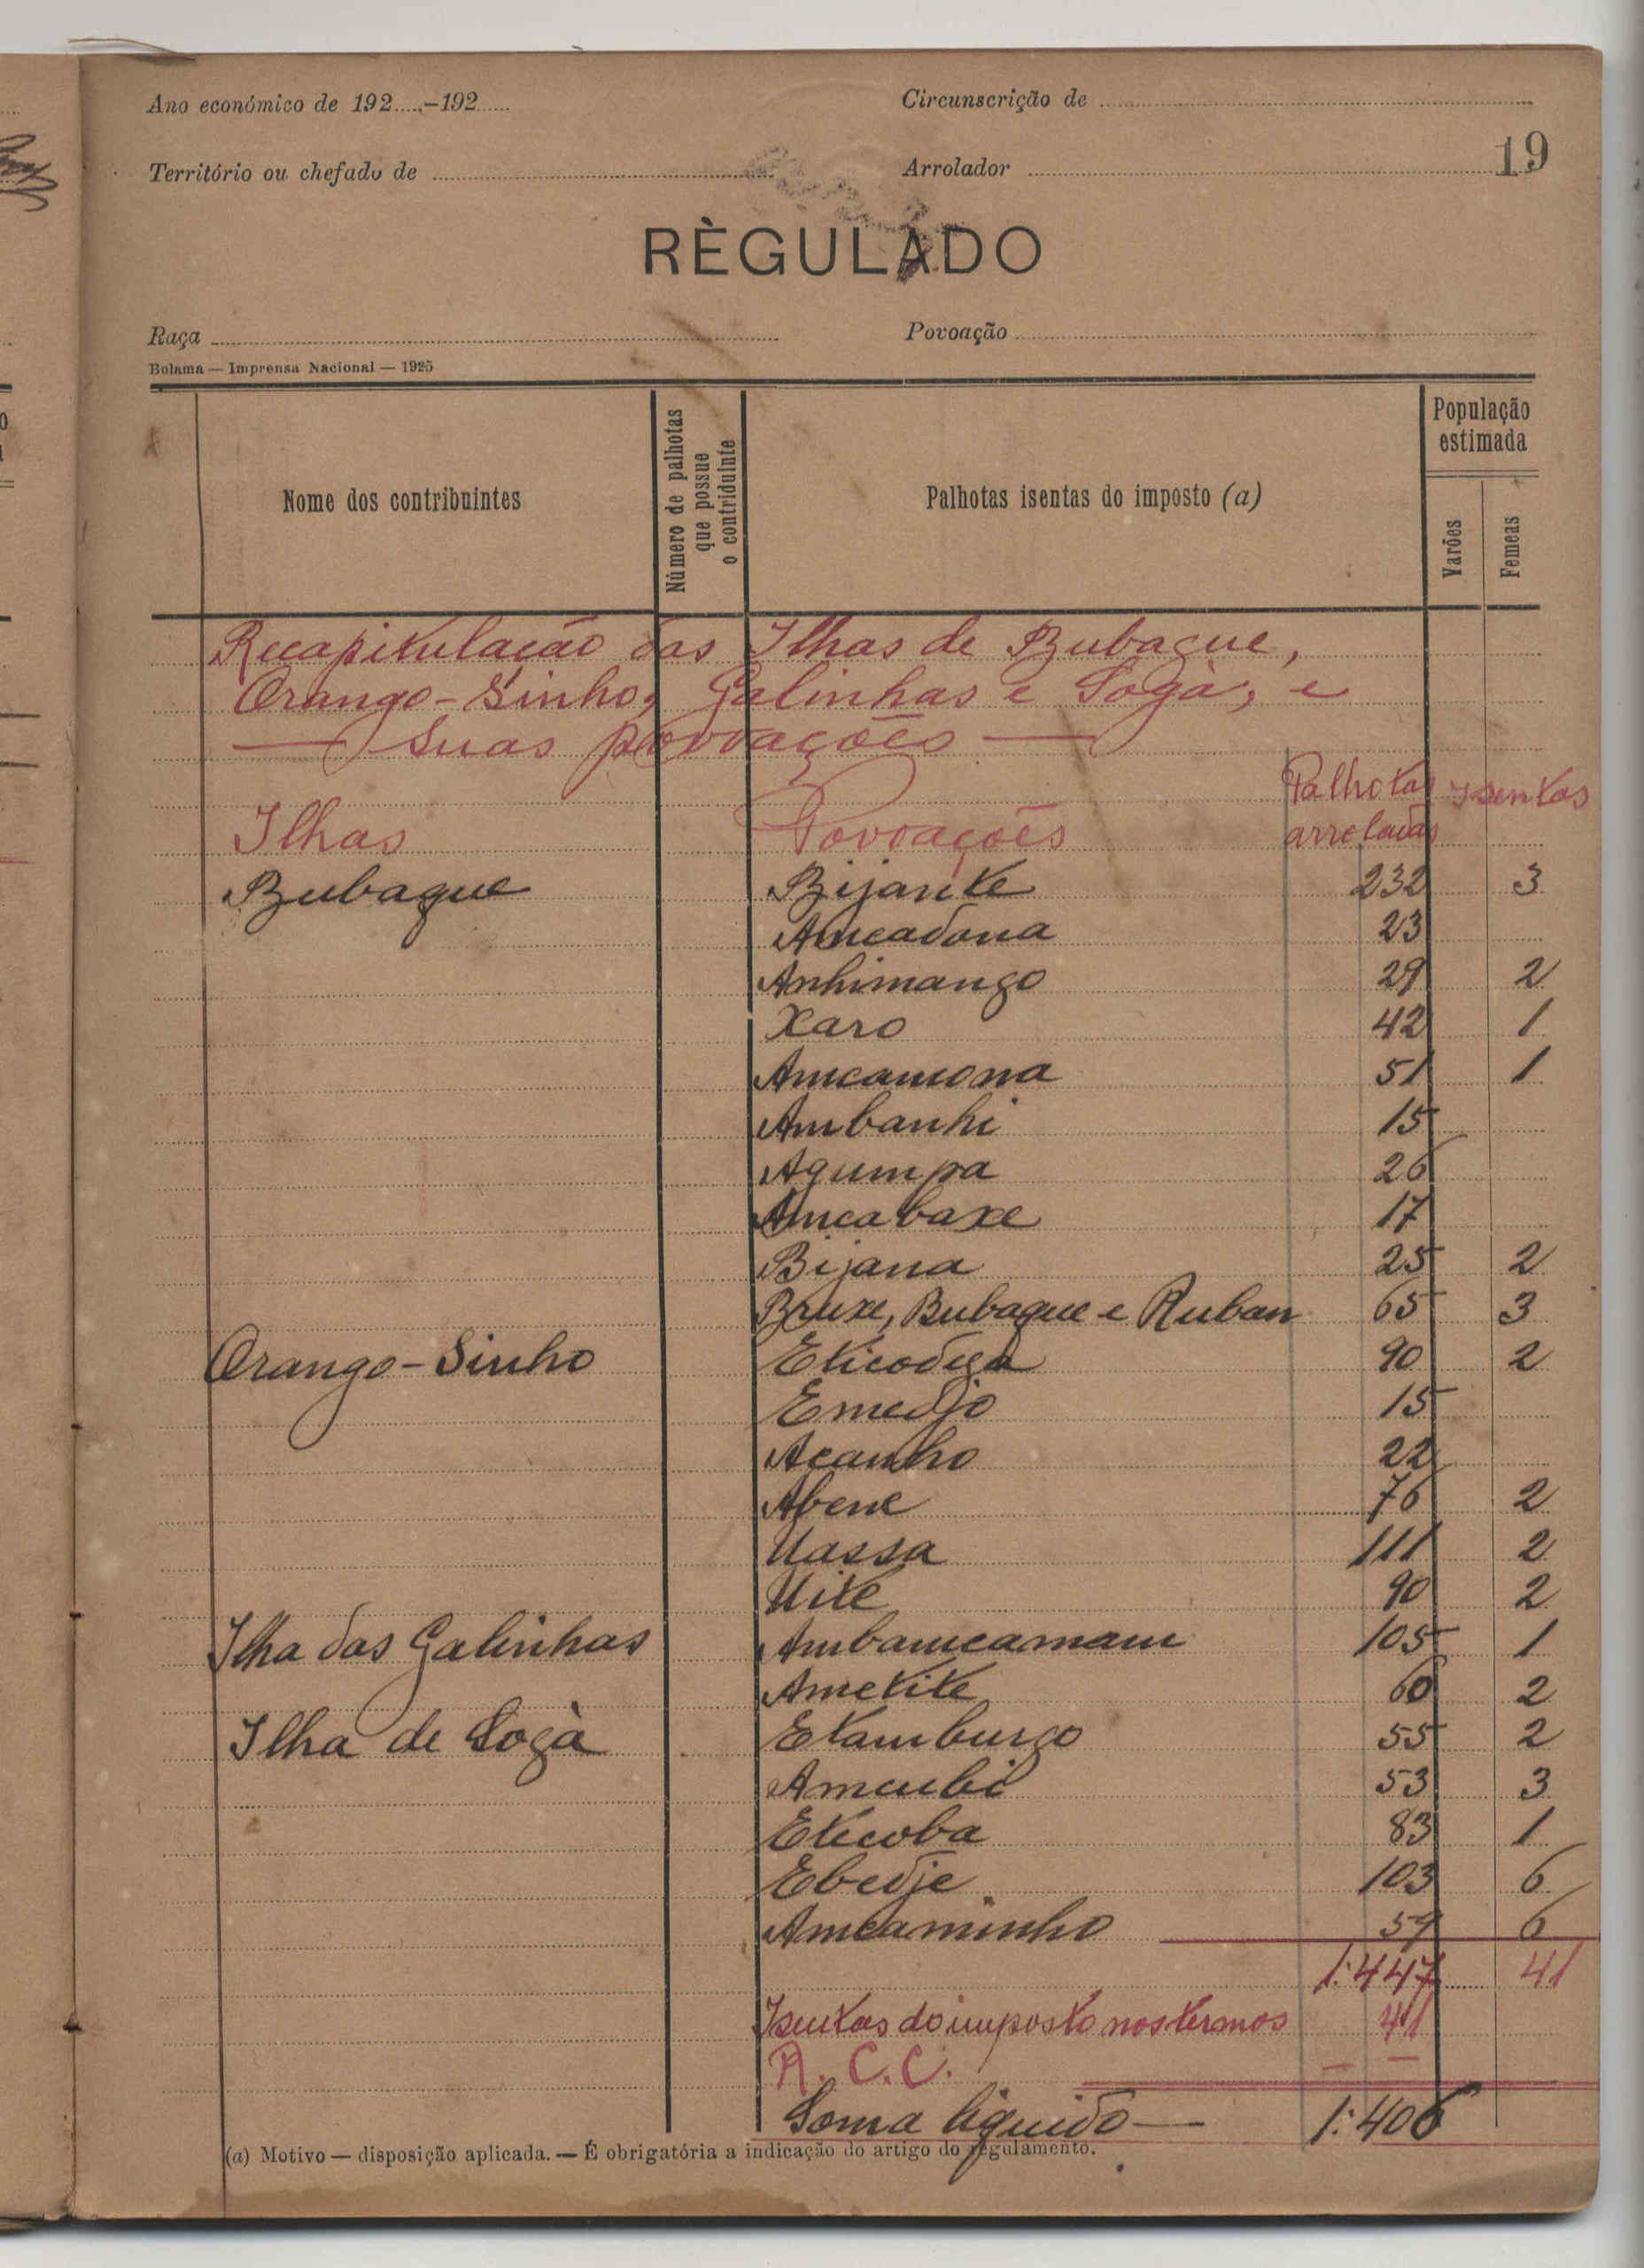 Ano económico de 192.....-192.....
Circunscrição de
19
Território ou chefado de
Arrolador
RÈGULADO
Raça
Povoação
Bolama — Imprensa Nacional — 1925
Nome dos contribuintes
Número de palhotas que possue o contriduinte
Palhotas isentas do imposto (a)
População estimada
Varões
Femeas
Recapitulacão das Ilhas de Bubaque,
Orango-Sinho, Galinhas e Sogà, e
— Suas povoações —
Ilhas Povoações Palhotas arroladas Isentas
Bubaque Bijante 232 3
Amcadona 23
Anhimango 29 2
Xaro 42 1
Amcamona 51 1
Ambanhi 15
Agumpa 26
Amcabaxe 17
Bijana 25 2
Bruxe, Bubaque e Ruban 65 3
Orango-Sinho Eticodega 90 2
Emedjo 15
Acanho 22
Abene 76 2
Uassa 111 2
Uite 90 2
Ilha das Galinhas Ambamcamam 105 1
Ametite 60 2
Ilha de Sogà Etamburgo 55 2
Amcubi 53 3
Eticoba 83 1
Ebedje 103 6
Amcaminho 59 6
1:447 41
Isentas do imposto nos termos 41
R. C. C. — —
Soma liquido — 1:406
(a) Motivo — disposição aplicada. — É obrigatória a indicação do artigo do regulamento.